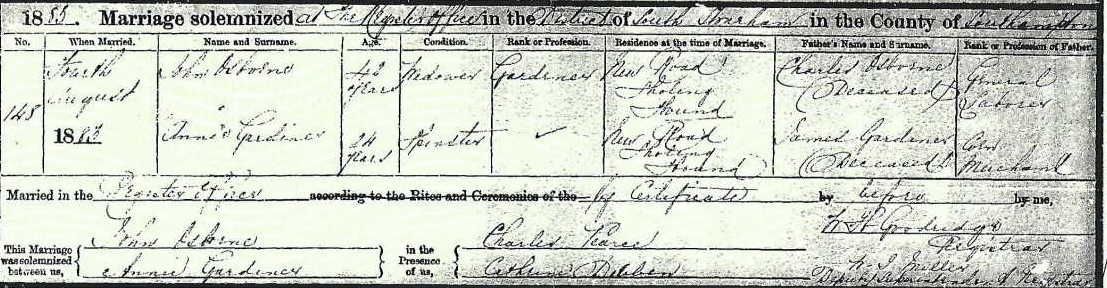 1883. Marriage solemnized at The Register Office in the District of South Stoneham in the County of Southampton
No. When Married. Name and Surname. Age. Condition. Rank or Profession. Residence at the time of Marriage. Father's Name and Surname. Rank or Profession of Father.
148 Fourth August 1883 John Osborne 42 years Widower Gardener New Road Sholing Hound Charles Osborne (Deceased) General Laborer
Annie Gardiner 24 years Spinster New Road Sholing Hound James Gardener (Deceased) Corn Merchant
Married in the Register Office according to the Rites and Ceremonies of the by Certificate by before by me,
This Marriage was solemnized between us, John Osborne Annie Gardiner in the Presence of us, Charles Pearce Catherine Dibben W H Goodridge Registrar
W. J. Miller
Deputy Superintendent Registrar